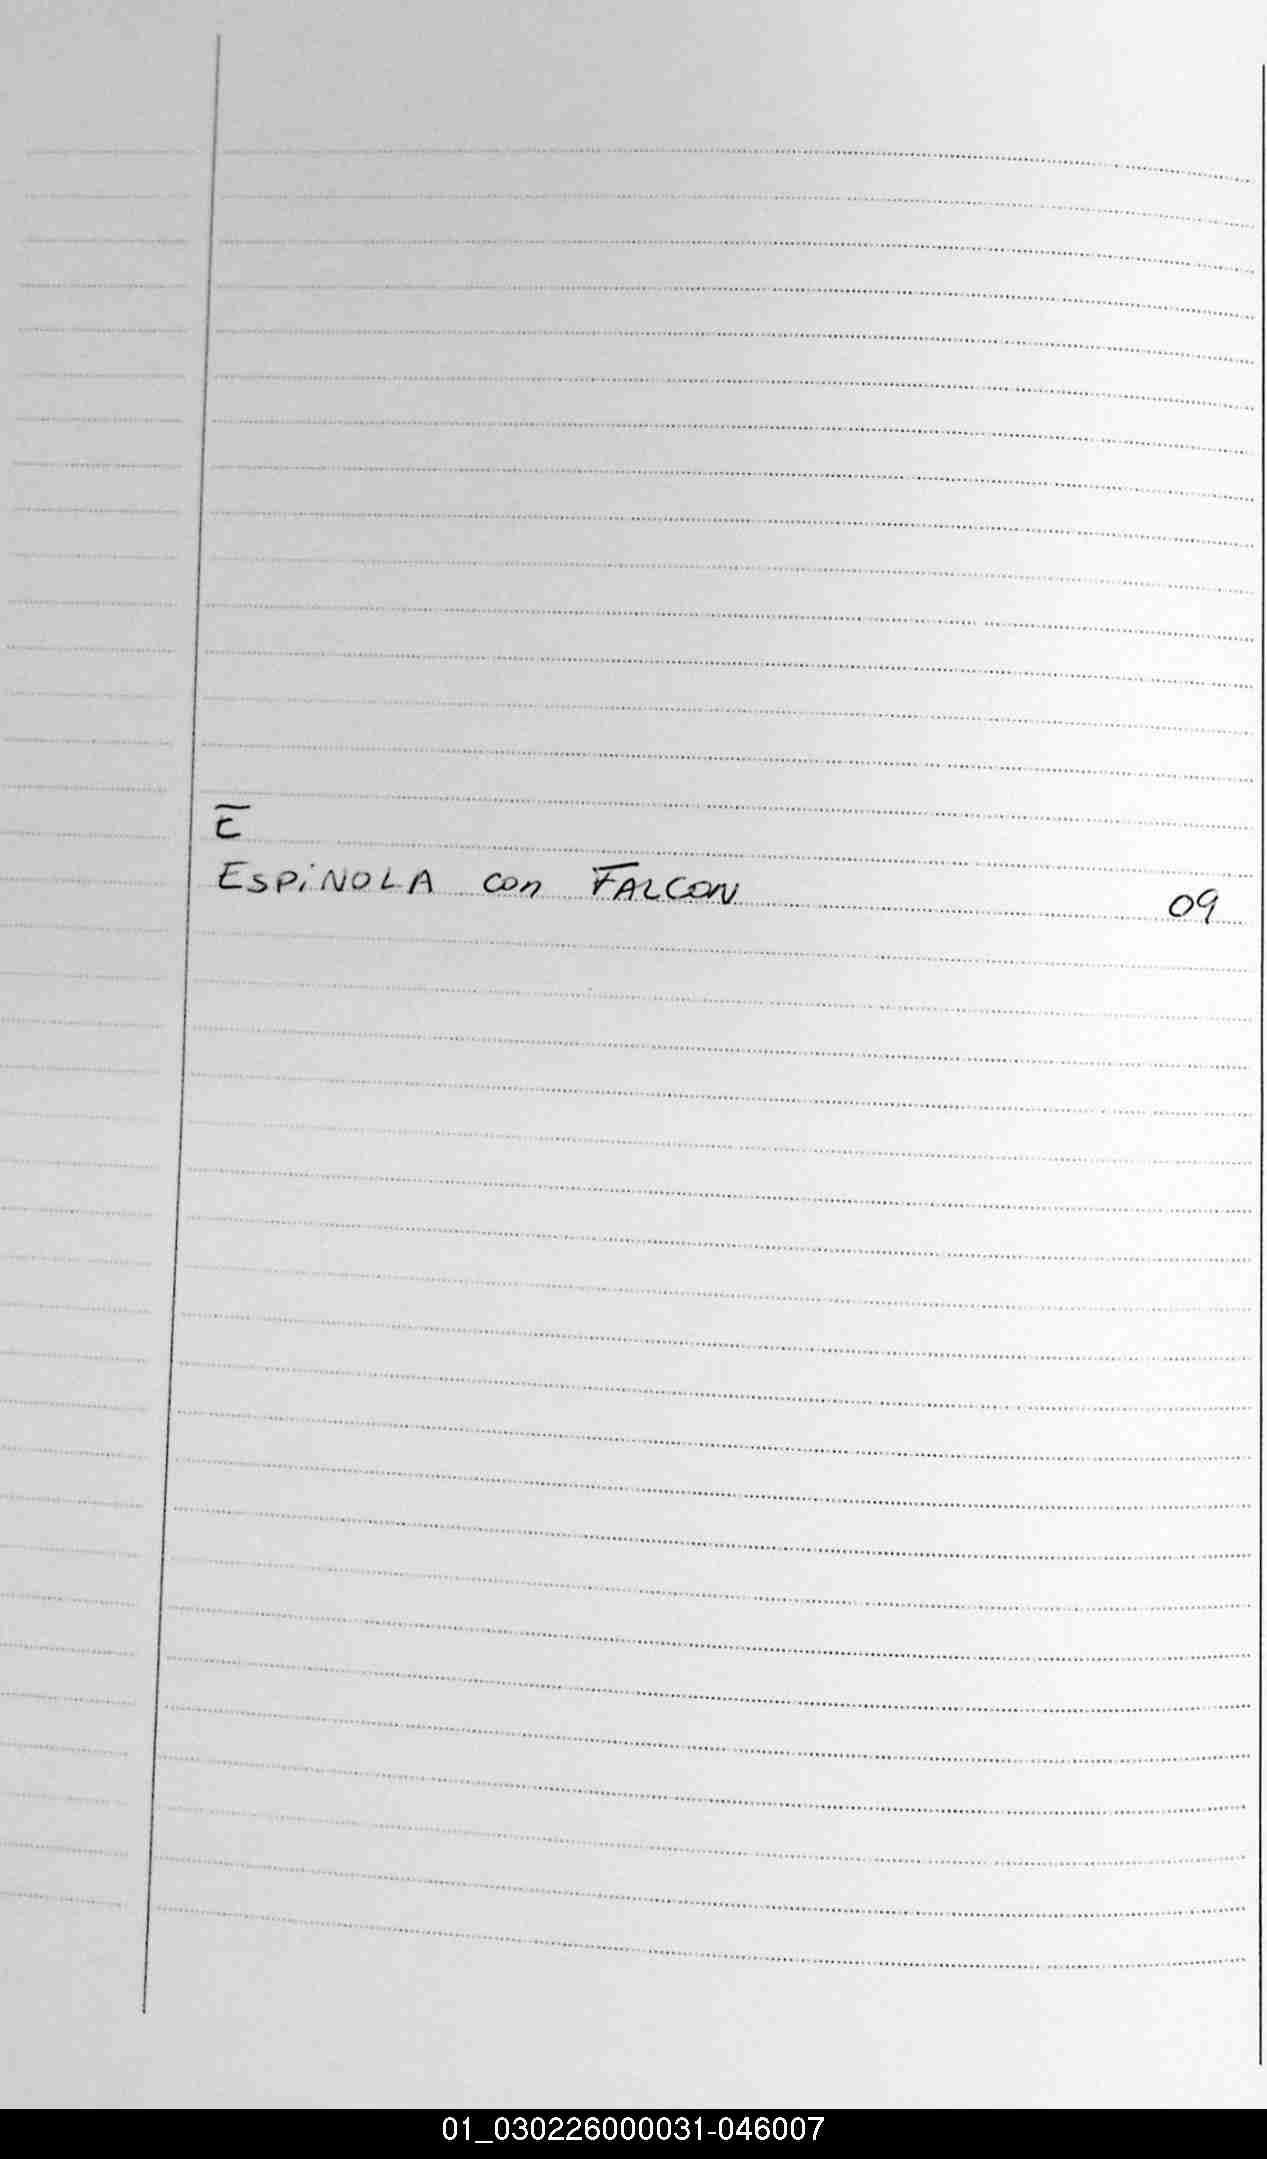 E
ESPiNOLA con FALCON 09
01_030226000031-046007